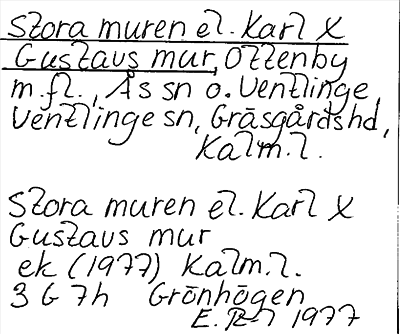 Stora muren el. Karl X
Gustavs mur, Ottenby
m.fl., Ås sn o. Ventlinge,
Ventlinge sn, Gräsgårdshd,
Kalm.l.
Stora muren el. Karl X
Gustavs mur
ek (1977) Kalm.l.
3 G 7h Grönhögen
E. 1977